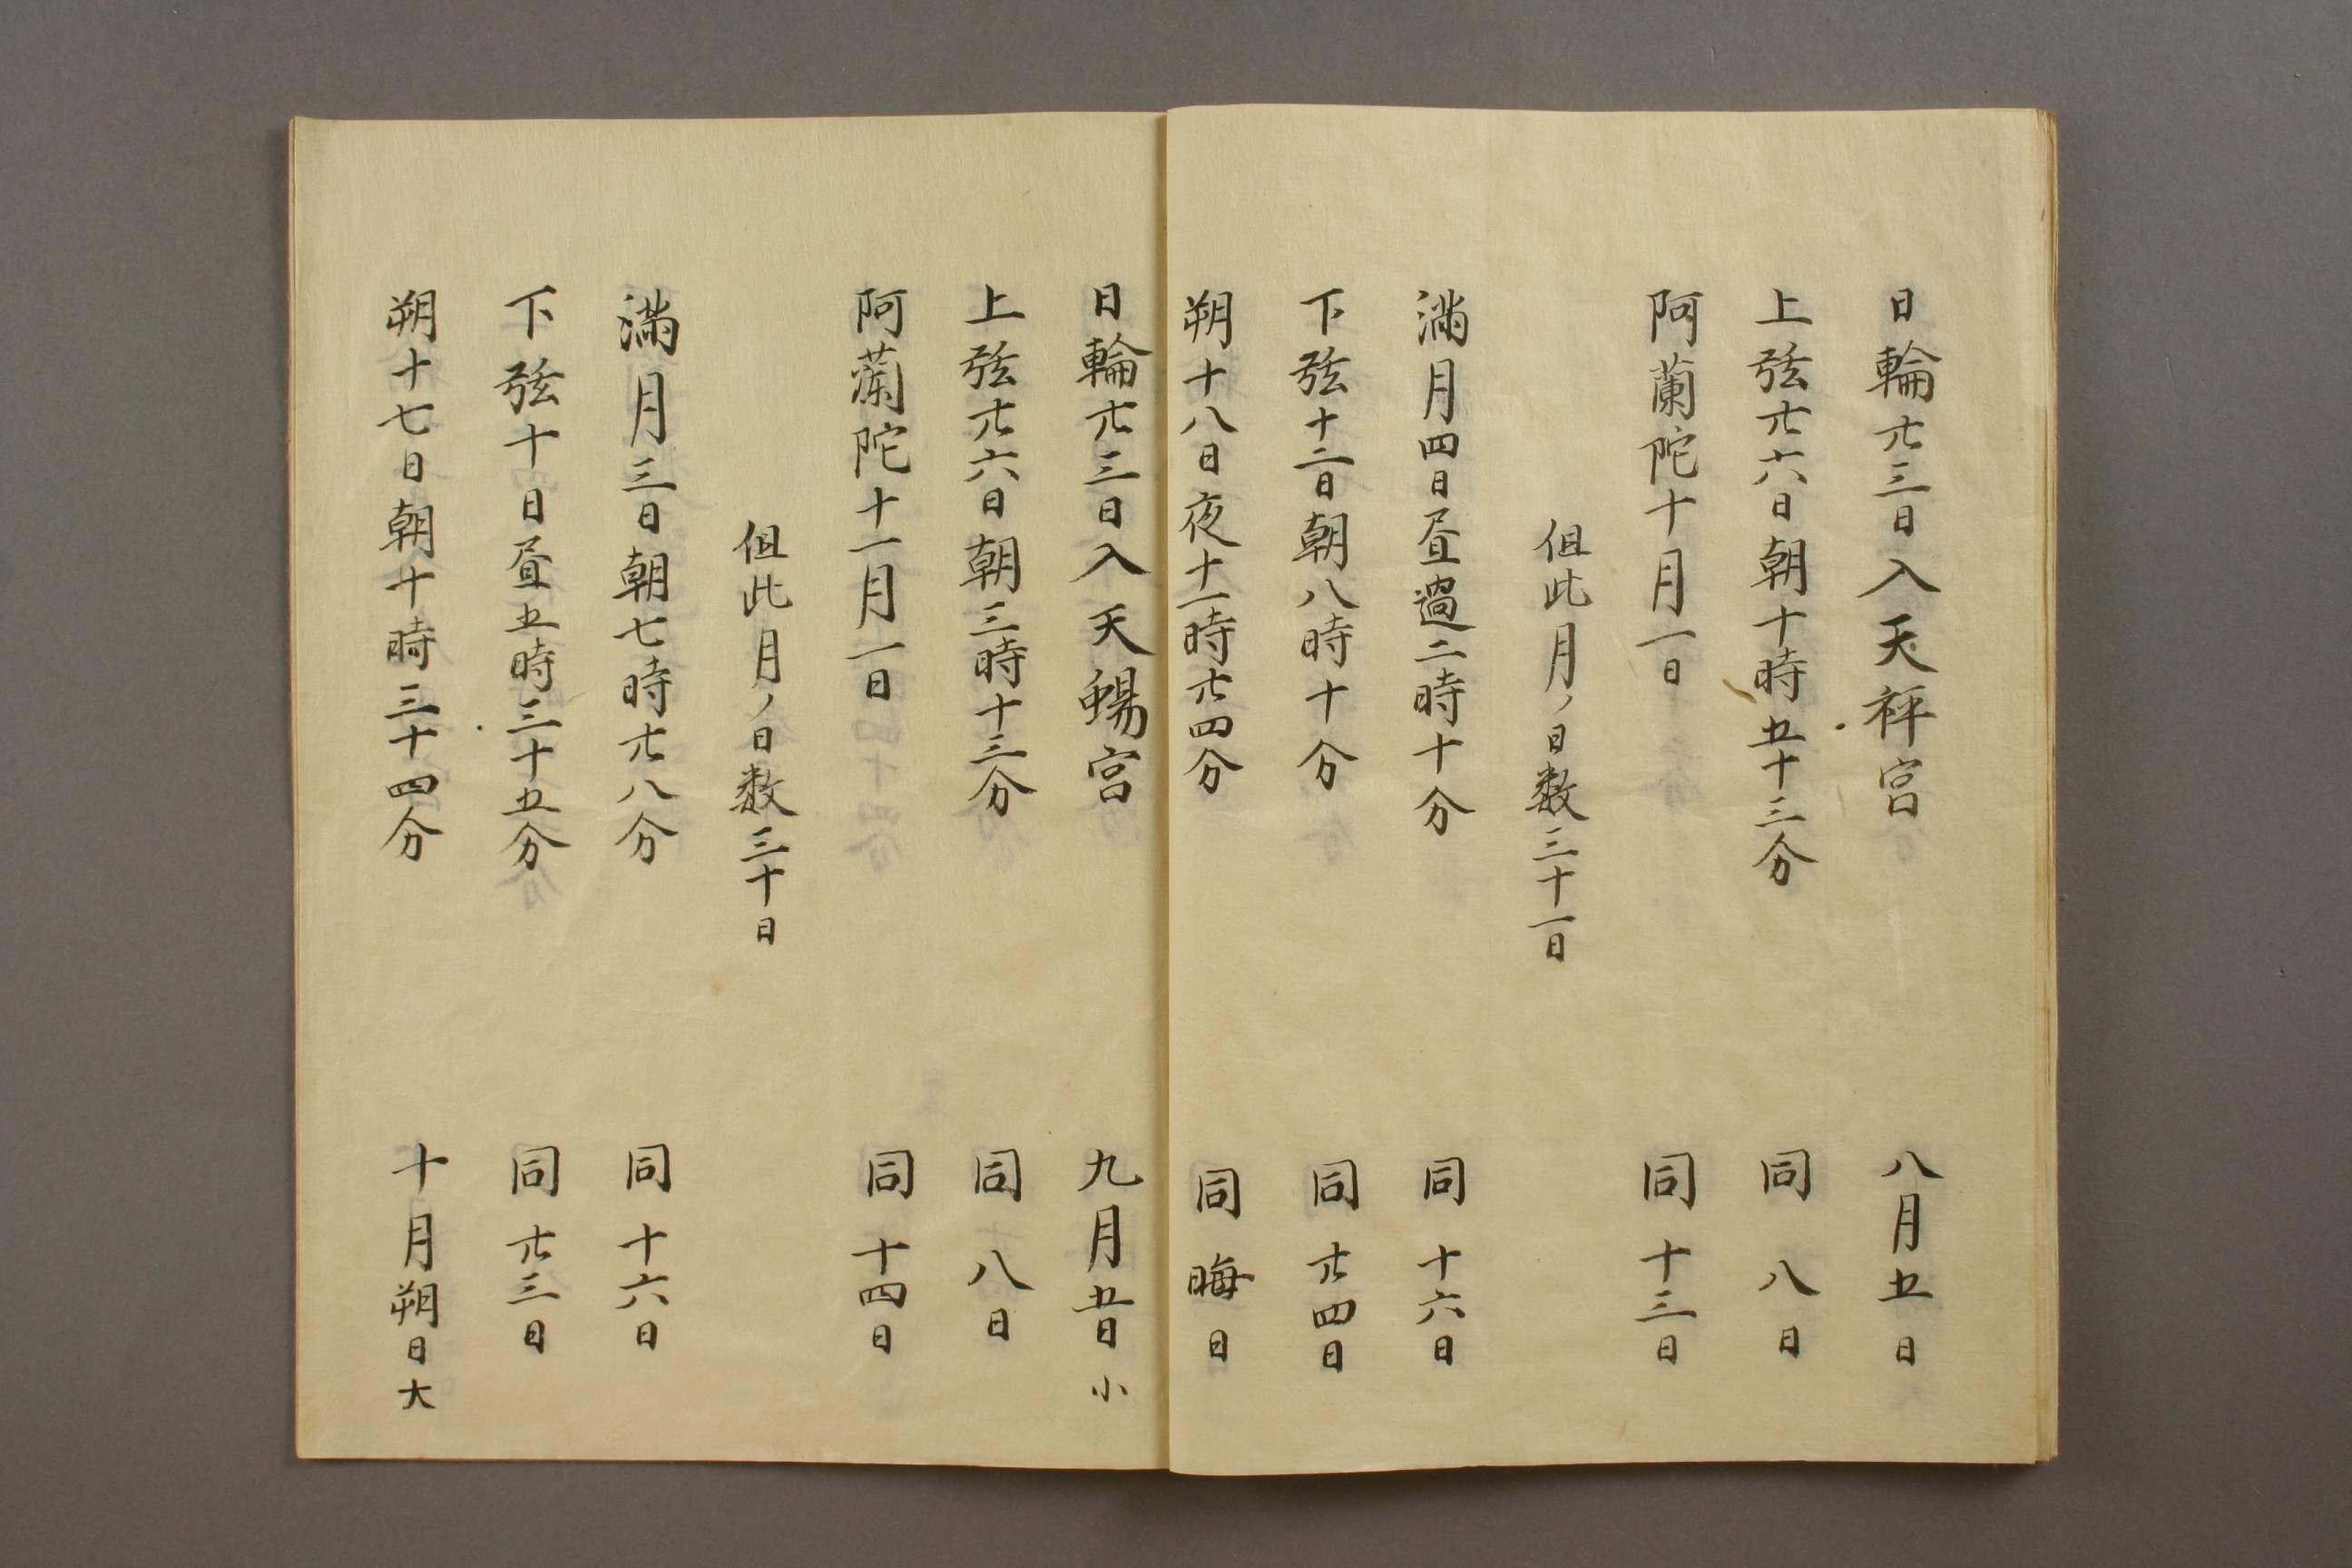 日輪廿三日入天秤宮　八月五日
上弦廿六日朝十時五十三分　同八日
阿蘭陀十月一日　同十三日
但此月ノ日数三十一日
満月四日昼過二時十分　同十六日
下弦十二日朝八時十分　同廿四日
朔十八日夜十一時廿四分　同晦日
日輪廿三日入天蝎宮　九月五日小
上弦廿六日朝三時十三分　同八日
阿蘭陀十一月一日　同十四日
但此月ノ日数三十日
満月三日朝七時廿八分　同十六日
下弦十日昼五時三十五分　同廿三日
朔十七日朝十時三十四分　十月朔日大